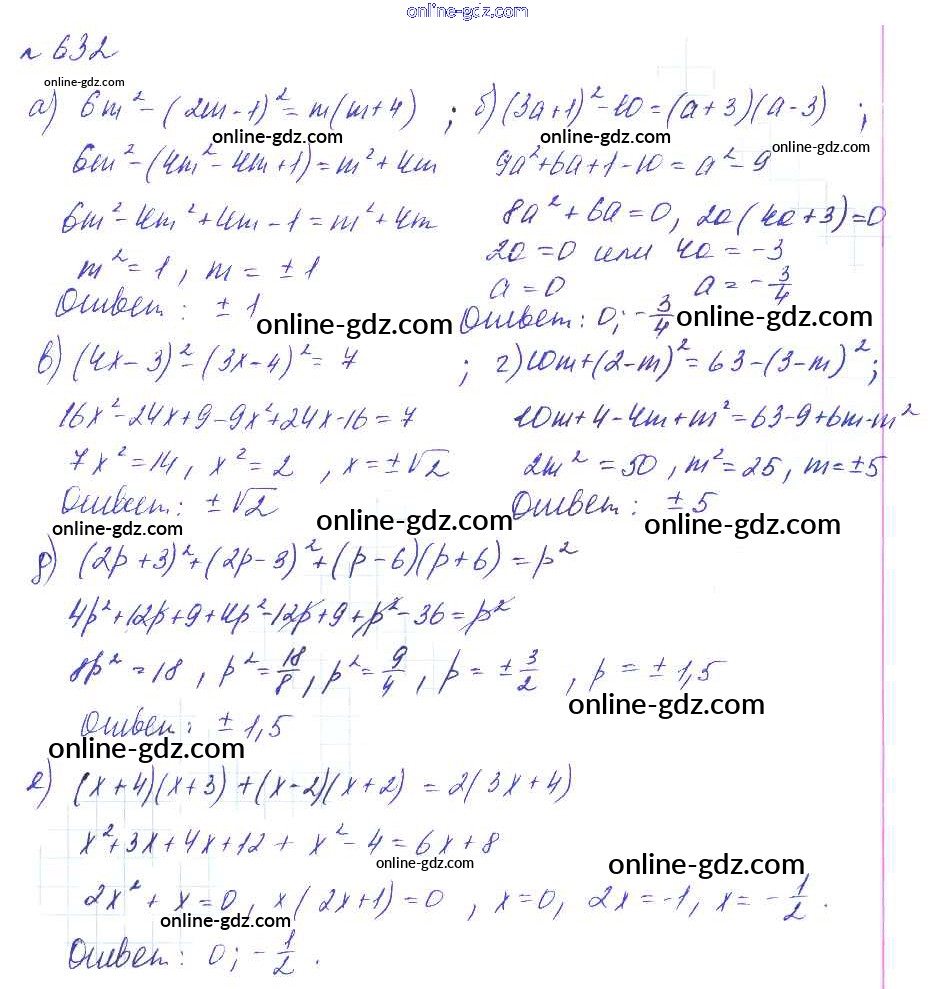 online-gdz.com
№ 632
online-gdz.com
а) 6m² - (2m - 1)² = m(m + 4) ; б) (3a + 1)² - 10 = (a + 3)(a - 3) ;
online-gdz.com online-gdz.com online-gdz.com
6m² - (4m² - 4m + 1) = m² + 4m 9a² + 6a + 1 - 10 = a² - 9
6m² - 4m² + 4m - 1 = m² + 4m 8a² + 6a = 0, 2a(4a + 3) = 0
m² = 1, m = ± 1 2a = 0 или 4a = -3
a = 0 a = -3/4
Ответ: ± 1 Ответ: 0; -3/4
online-gdz.com online-gdz.com
в) (4x - 3)² - (3x - 4)² = 7 ; г) 10m + (2 - m)² = 63 - (3 - m)² ;
16x² - 24x + 9 - 9x² + 24x - 16 = 7 10m + 4 - 4m + m² = 63 - 9 + 6m - m²
7x² = 14, x² = 2, x = ±√2 2m² = 50, m² = 25, m = ±5
Ответ: ±√2 Ответ: ± 5
online-gdz.com online-gdz.com online-gdz.com
д) (2p + 3)² + (2p - 3)² + (p - 6)(p + 6) = p²
4p² + 12p + 9 + 4p² - 12p + 9 + p² - 36 = p²
8p² = 18, p² = 18/8, p² = 9/4, p = ± 3/2, p = ± 1,5
online-gdz.com
Ответ: ± 1,5
online-gdz.com
е) (x + 4)(x + 3) + (x - 2)(x + 2) = 2(3x + 4)
x² + 3x + 4x + 12 + x² - 4 = 6x + 8
online-gdz.com online-gdz.com
2x² + x = 0, x(2x + 1) = 0, x = 0, 2x = -1, x = -1/2.
online-gdz.com
Ответ: 0; -1/2.